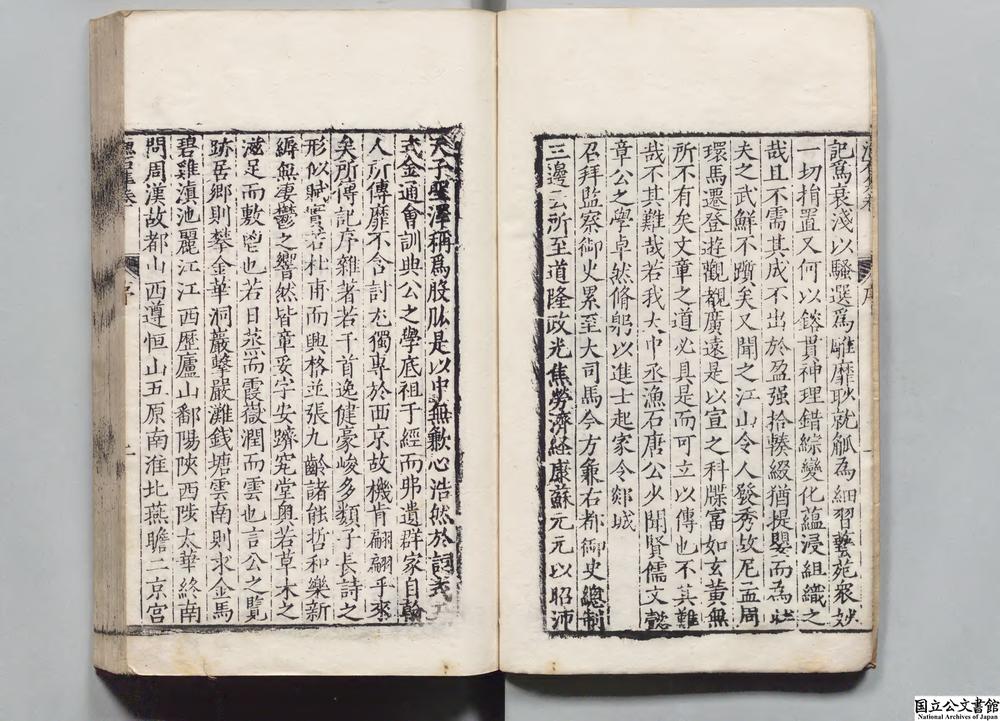 記爲哀淺以騷選爲雕靡耿就觚為細習藝苑衆妙
一切掮置又何以鎔貫神理錯綜變化蘊浸組織之
哉且不需其成不出於盈强拾輳綴猶提嬰而為
夫之武鮮不躓矣又聞之江山令人發秀故尼孟周
環馬遷登遊觀覩廣遠是以宣之科牒富如玄黃無
所不有矣文章之道必具是而可立以傳也不其難
哉不其難哉若我大中丞漁石唐公少聞賢儒文懿
章公之學卓然脩躬以進士起家令郯城
召拜監察御史累至大司馬今方兼右都御史總制
三邊云所至道隆政光焦勞濟経康蘇元元以昭沛
天子聖澤稱爲股肱是以中無歉心浩然於詞
金通會訓典公之學底祖于經而弗遺群家自翰
人所傳靡不含討尤獨專於西京故機肯翩翩乎來
矣所傳記序雜著若干首逸健豪峻多類子長詩之
形似賦實若杜甫而興格並張九齡諸能哲和樂新
縟無凄鬱之響然皆章妥字安躋究堂奥若草木之
滋足而敷鬯也若日蒸而霞嶽潤而雲也言公之覽
跡居鄉則攀金華洞巖擊嚴灘錢塘雲南則求金馬
碧雞滇池麗江江西歷廬山鄱陽陝西陟太華終南
問周漢故都山西遵恒山五原南淮北燕瞻二京宮
序
国立公文書館
National Archives of Japan